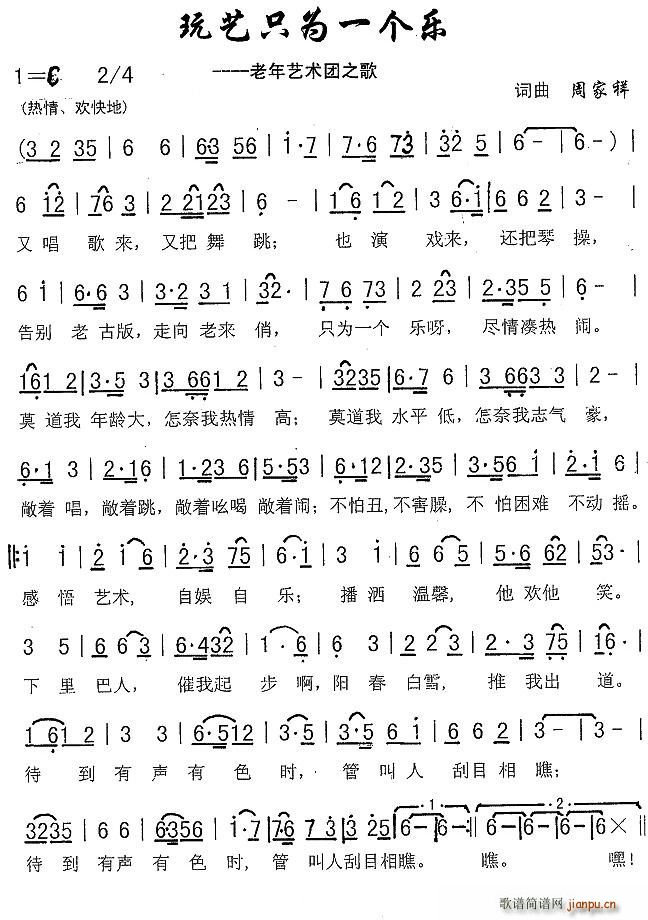 玩艺只为一个乐
1=C 2/4 ----老年艺术团之歌
词曲 周家祥
(热情、欢快地)
(3 2 35 | 6 6 | 63 56 | i·7 | 7·6 73 | 32 5 | 6- | 6-) |
6 i2 | 76 3 | 2 2123 | 6- | 16 12 | 3 6·i | 6 6 2 | 3- |
又唱 歌来, 又把舞 跳; 也演 戏来, 还把琴 操,
6 i | 6·6 3 | 3·2 3 1 | 32· | 7 6 73 | 2 23 | 2·35 5 | 6- |
告别 老古版, 走向老来 俏, 只为一个 乐呀, 尽情凑热 闹。
161 2 | 3·5 3 | 3 661 2 | 3- | 3235 | 6·7 6 | 3 663 3 | 2- |
莫道我 年龄大, 怎奈我热情 高; 莫道我 水平低, 怎奈我志气 豪,
6·1 3 | 2·16 | 1·23 6 | 5·53 | 6·12 | 2·23 | 3·56 i | 2·i 6 |
敞着唱, 敞着跳, 敞着吆喝 敞着闹; 不怕丑, 不害臊, 不怕困难 不动摇。
|: i i | 2 i 6 | 2·3 75 | 6·i | 3 i | 6 65 | 5·6 62 | 53· |
感悟 艺术, 自娱自 乐; 播洒 温馨, 他欢他 笑。
3 5 | 6 63 | 6·432 | 1·6 | 6 3 | 2 23 | 2·3 75 | 16· |
下里 巴人, 催我起 步啊, 阳春 白雪, 推我出 道。
1 61 2 | 3 3 | 6·512 | 3·5 | 3·5 6 i | 6 6 2 | 3- | 3- |
待到 有声 有色 时, 管叫人 刮目相 瞧;
3235 | 6 6 | 6356 | i·7 | 76 7 3 | 3 25 | 6- | 6- :| 6- | 6- | 6- | 6× ||
待到 有声 有色 时, 管 叫人刮目相瞧。 瞧。 嘿!
歌谱简谱网
jianpu.cn